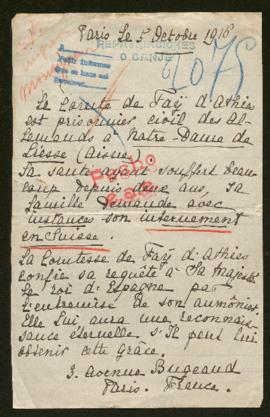 Paris le 5 Octobre 1916
REPATRIACIONES
O CANJE
2075
A
Pedir informes
Que se hace ael
Le Comte de Faÿ d'Athies
est prisonnier civil des Al-
lemands à Notre-Dame de
Liesse (Aisne)
Sa santé ayant souffert beau-
coup depuis deux ans, sa
famille demande avec
instances son internement
en Suisse.
La Comtesse de Faÿ d'Athies
confie sa requête à Sa Majesté
le Roi d'Espagne par
l'entremise de son aumônier.
Elle lui aura une reconnais-
sance éternelle s'Il peut lui
obtenir cette Grâce.
3. Avenue Bugeaud
Paris. France.